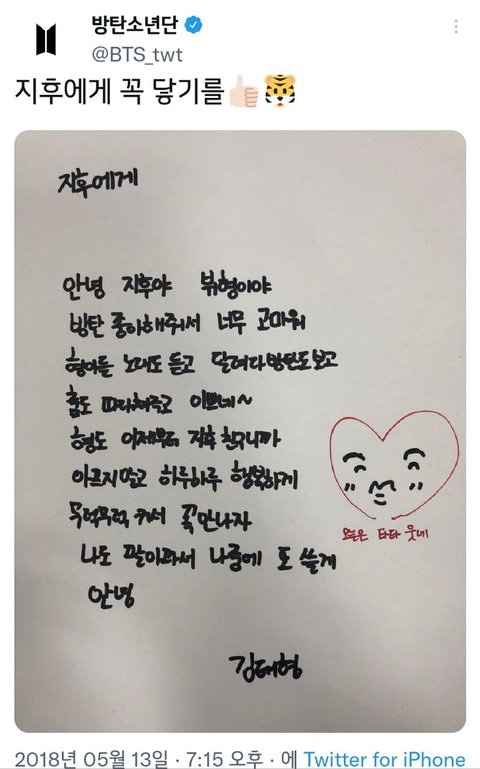 방탄소년단
@BTS_twt
지후에게 꼭 닿기를👍🏻🐯
지후에게
안녕 지후야 뷔형이야
방탄 좋아해줘서 너무 고마워
형아들 노래도 듣고 달려라방탄도보고
춤도 따라춰주고 이쁘네~
형도 이제부터 지후 친구니까
아프지말고 하루하루 행복하게
무럭무럭 커서 꼭 만나자
오늘은 타타 웃네
나도 팔아파서 나중에 또 쓸게
안녕
김태형
2018년 05월 13일 · 7:15 오후 · 에 Twitter for iPhone